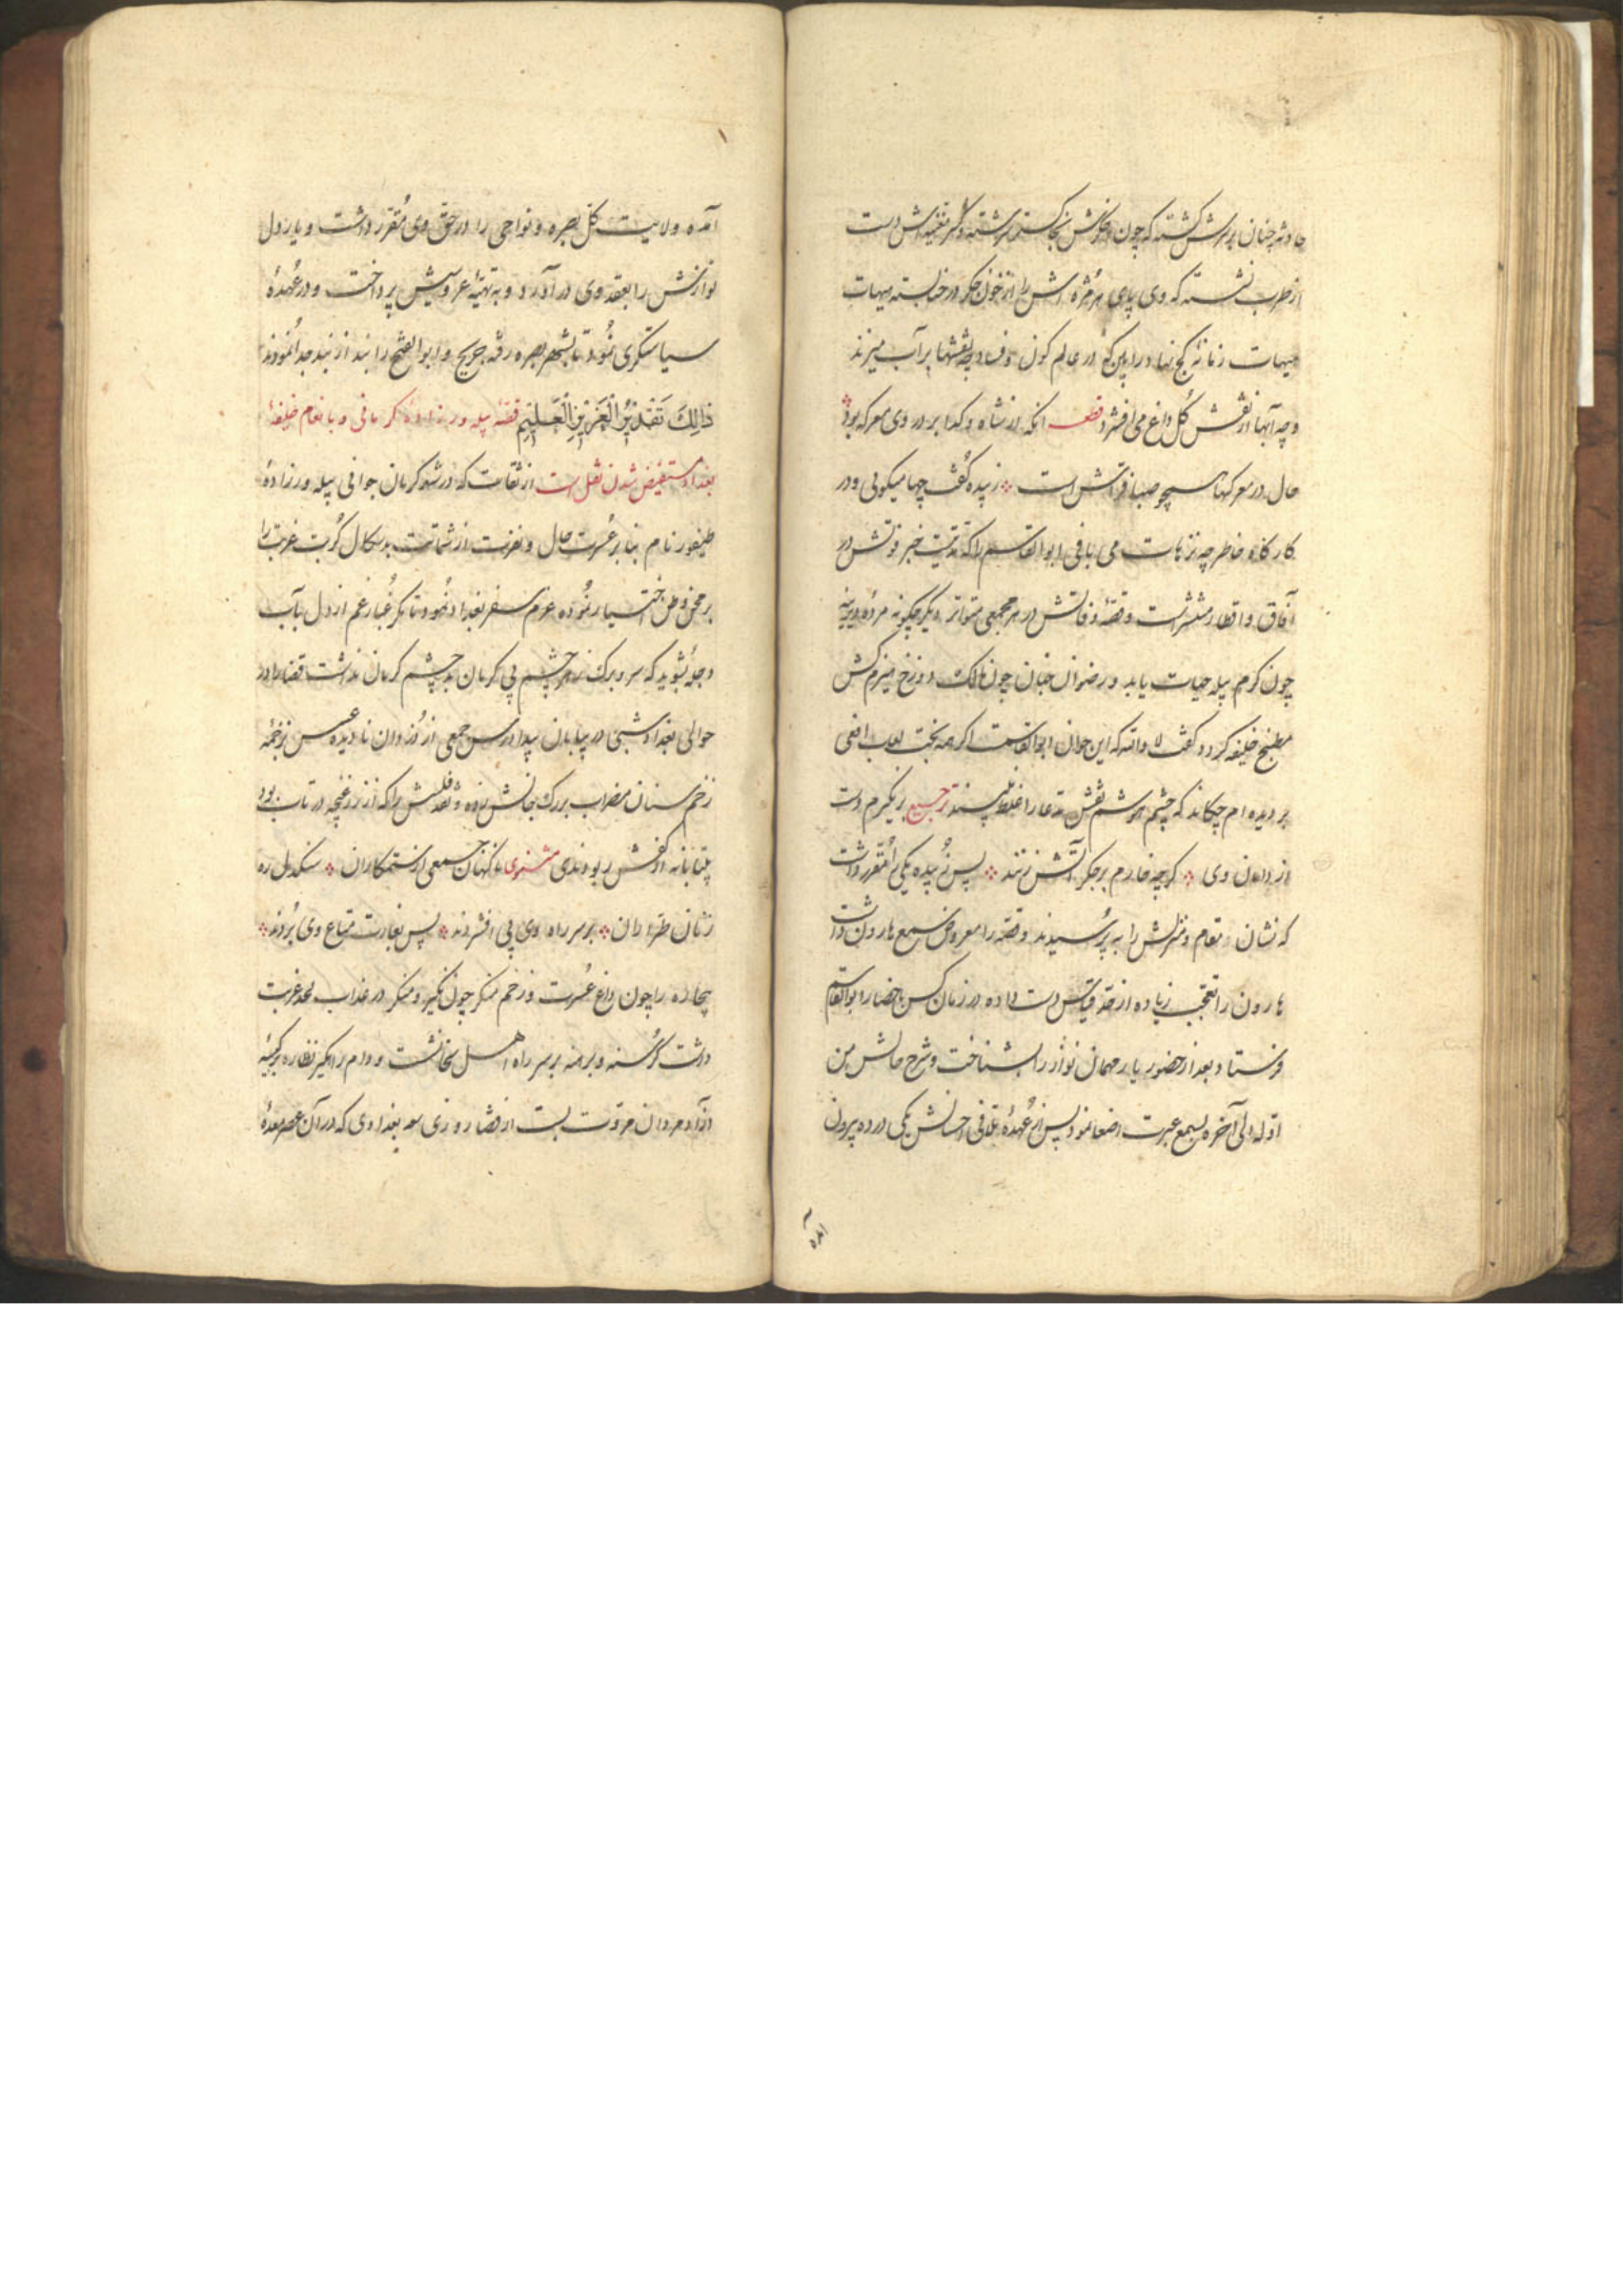 حادثه چنان بر سرش گشته که چون خاکستر سرشته دست
از طرب نشسته که وی پای هر مژه اش را از خون جکر در حنا بسته هیهات
هیهات زمانهٔ کج نهاد در عالم کون و فساد چه نقشها بر آب میزند
و چه آبها از نقش کل داغ می افشرد قطعه انکه از شاه و کدا بر در وی معرکه بود
حال در معرکها صبا فراش است زبیده کفت چها میکوئی و در
کارکاه خاطر چه ترهات می بافی ابو القاسم را که مدتیست خبر فوتش در
آفاق و اقطار منتشر است و قصهٔ وفاتش در هر مجمعی متواتر دیکر چکونه مردهٔ دیرینه
چون کرم پیله حیات یابد و رضوان جنان چون مالک دوزخ هیزم کش
مطبخ خلیفه کردد کفت لا والله که این جوان ابوالقاسمست اکر همه بخت لعاب افعی
بر دیده ام چکاند که چشم نقش مدعا را غلط بیند ترجیع ر نکیرم دست
از دامان وی کرچه خارم بر جکر آتش زنند پس زبیده یکی را مقرر داشت
که نشان مقام و منزلش را به پرسیدند و قصه را معروض سمع هارون داشت
هارون را تعجب زیاده از حد قیاس دست داده در زمان کس باحضار ابوالقاسم
فرستاد و بعد از حضور یار مهمان نواز را بشناخت و شرح حالش من
اوله الی آخره بسمع عبرت اصغا نمود پس از عهدهٔ تلافی احسانش یکی در ده بیرون
آمده
آمده ولایت کل بصره و نواحی را در حق وی مقرر داشت و یار دل
نوازش را بعقد وی در آورد و به تهیهٔ عروسیش پرداخت و در عهدهٔ
سیاستکری نمود تا بشهر بصره رفته جریح و ابو الفتح را بند از بند جدا نمودند
ذٰلِکَ تَقْدِیْرُ الْعَزِیْزِ الْعَلِیْمِ قصهٔ پیله ورزادهٔ کرمانی و بانعام خلیفهٔ
بغداد مستفیض شدن نقل است از ثقات که در شهر کرمان جوانی پیله ورزادهٔ
طیفور نام بنا بر عسرت حال و نفرت از شماتت بدسکال کربت غربت را
بر محن وطن اختیار نموده عزم سفر بغداد نمود تا مکر غبار غم از دل بآب
دجله بشوید که سر و برک زهر چشم بی کرمان بد چشم کرمان نداشت قضا را در
حوالی بغداد شبی در بیابان جمعی از دزدان نادیده عسس بزخمهٔ
زخم سنان مضراب بر رک جانش زده و نقد فلسش را که از زر غنچه در تاب بود
از کفش ربودندی مثنوی ناکهان جمعی از ستمکاران سنکدل ره
زنان طراران بر سر راه وی پی افشردند پس بغارت متاع وی بردند
بیچاره را چون داغ عسرت و زخم منکر چون نکیر و منکر در عذاب لحد غربت
داشت کرسنه و برهنه بر سر راه اهل سخا نشست و دام را نظاره بر کیسهٔ
آزاد مردان مروت بست از قضا روزی بغدادی که در آن عصر معدهٔ